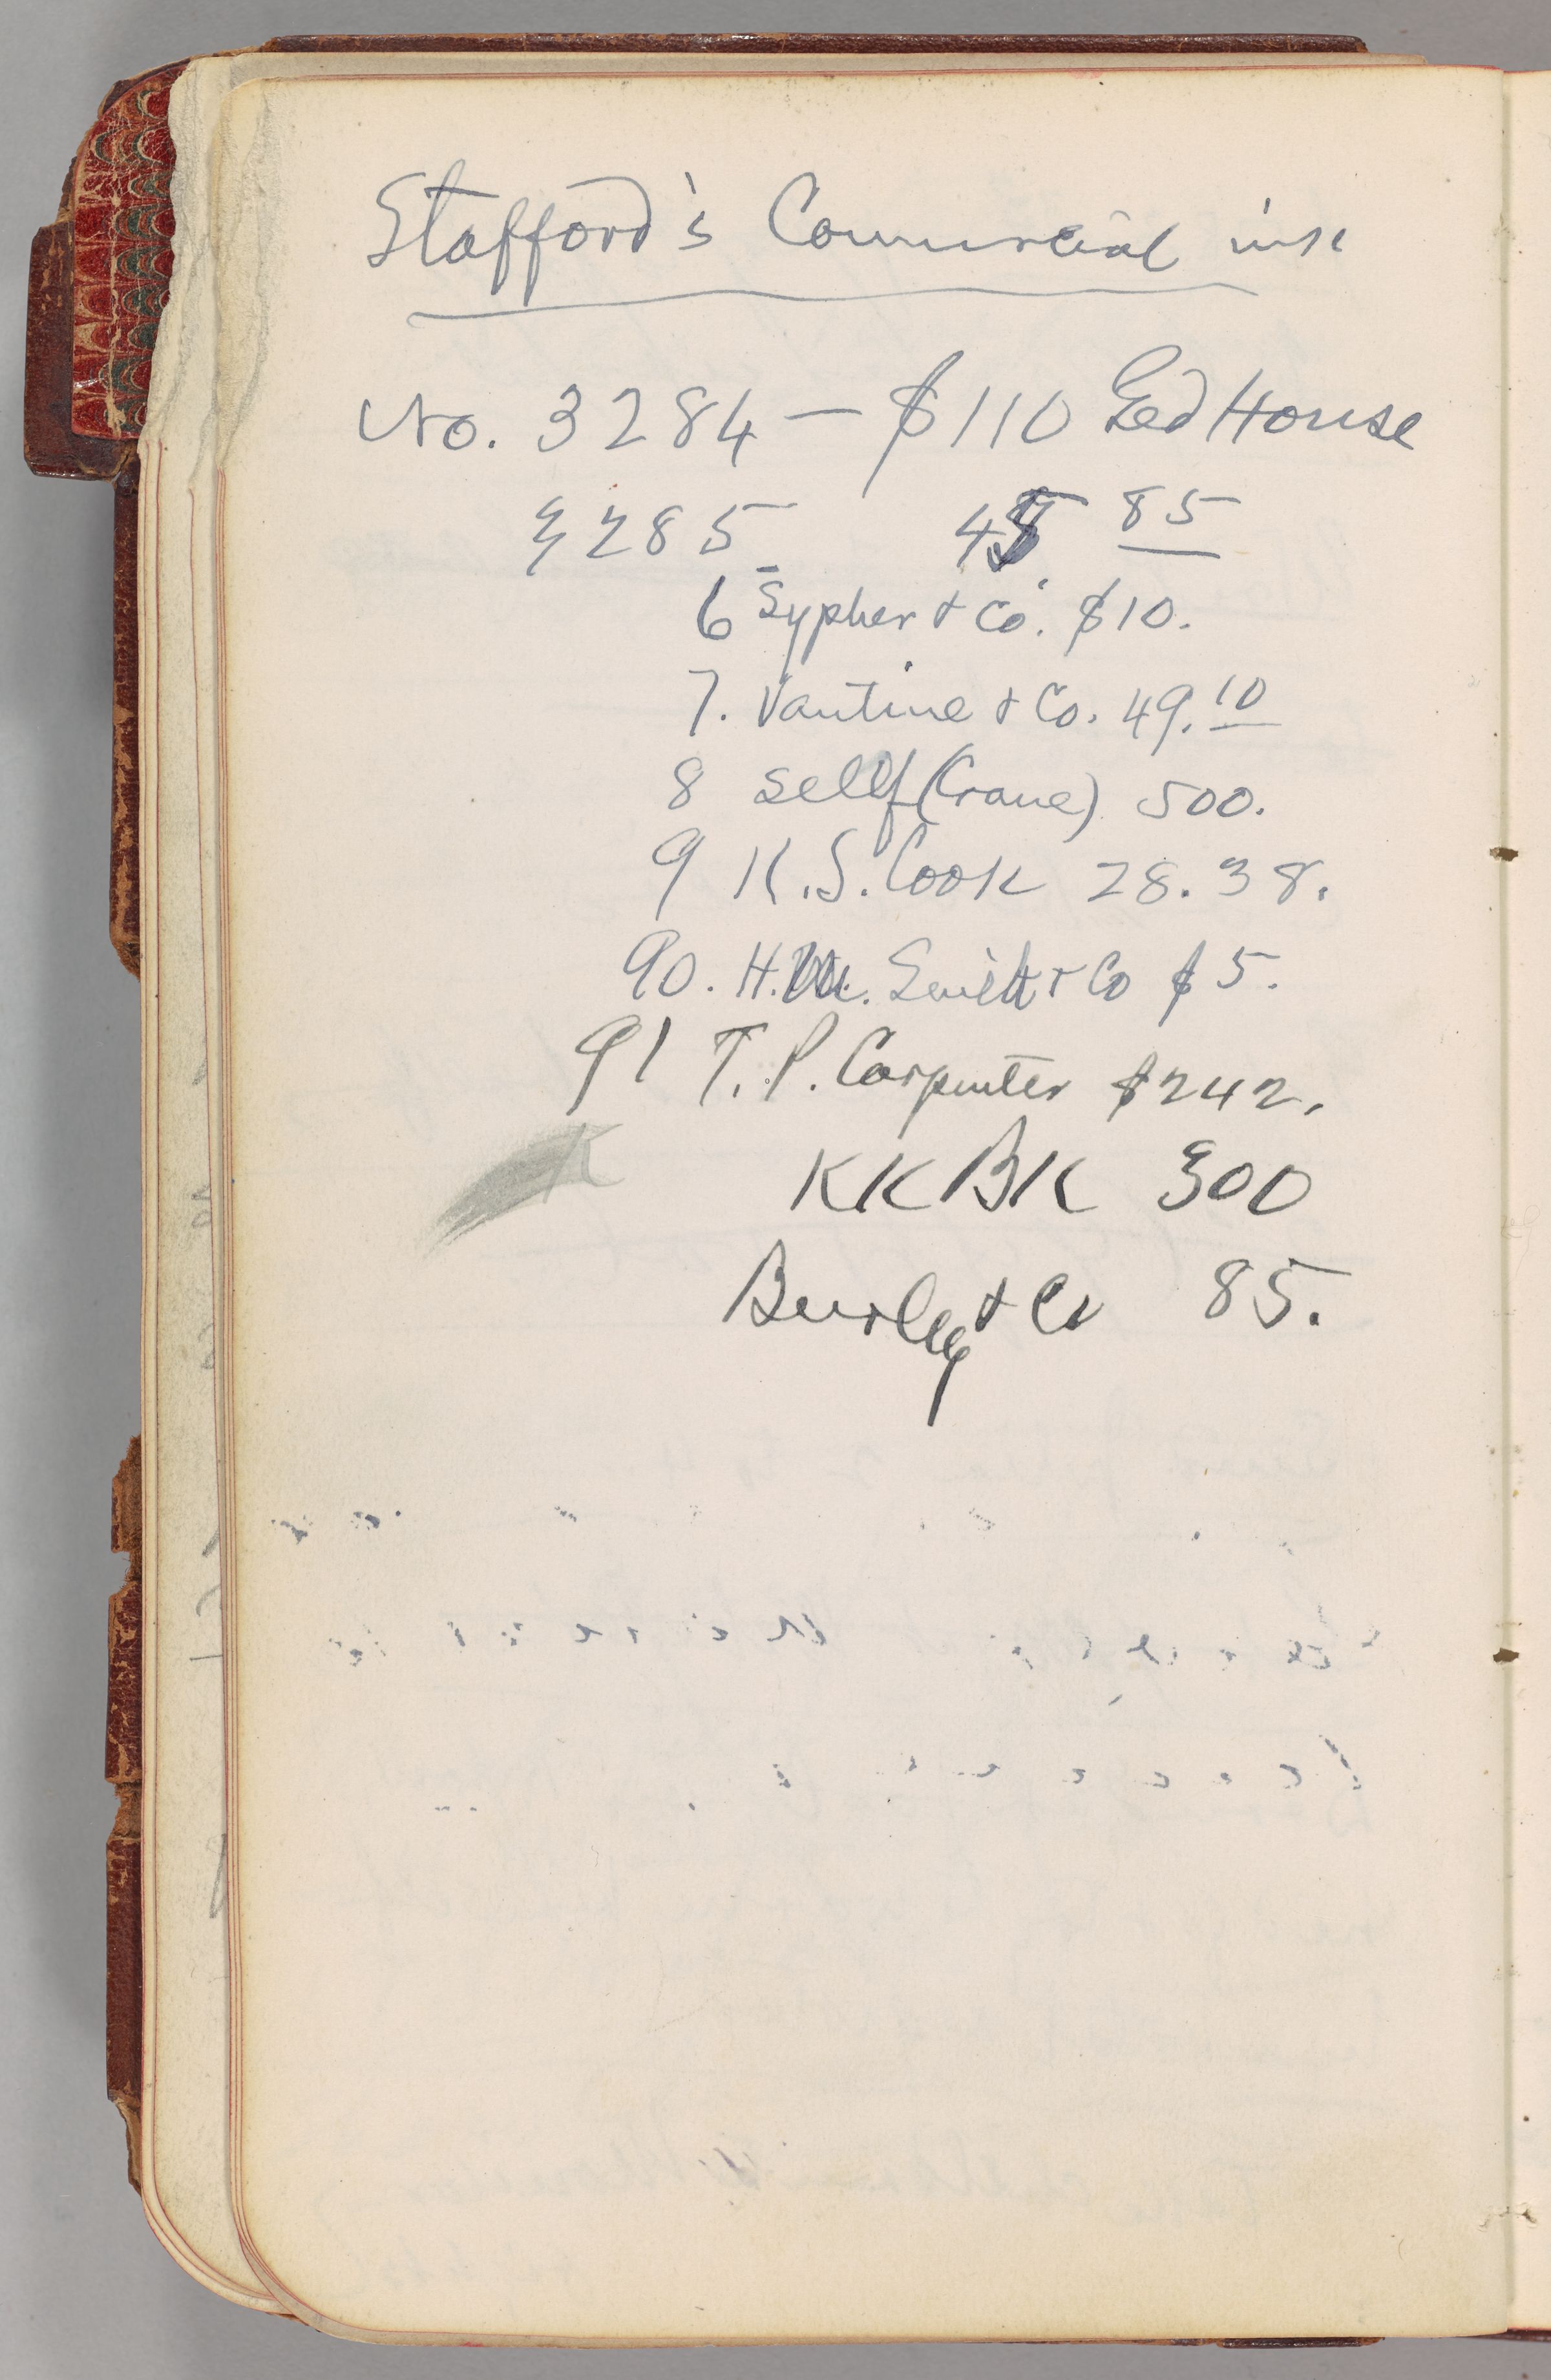 Stafford's Commercial ink
No. 3284 — $110 Ted House
3285 45 85
6 Sypher & Co. $10.
7. Vantine & Co. 49.10
8 self (Crane) 500.
9 K.S. Cook 28.38.
90. H.M. Smith & Co $5.
91 T.P. Carpenter $242.
KKBK 300
Burley & Co 85.